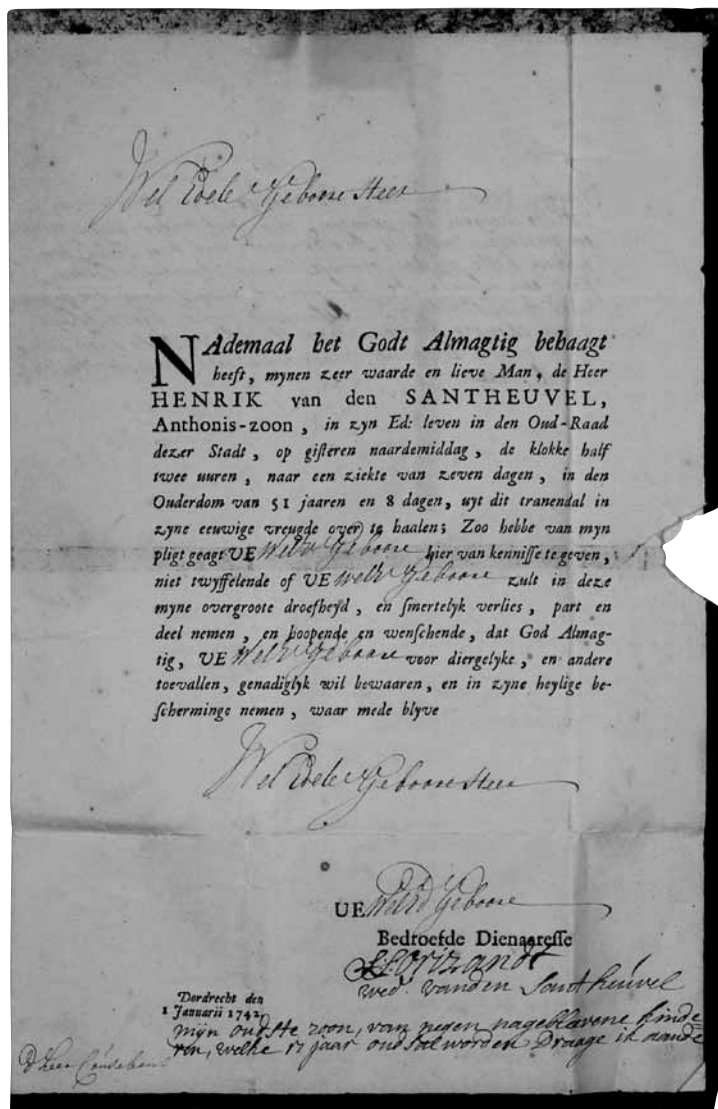 Wel Edele Geboore Heer
NAdemaal het Godt Almagtig behaagt
heeft, mynen zeer waarde en lieve Man, de Heer
HENRIK van den SANTHEUVEL,
Anthonis-zoon, in zyn Ed: leven in den Oud-Raad
dezer Stadt, op gisteren naardemiddag, de klokke half
twee uuren, naar een ziekte van zeven dagen, in den
Ouderdom van 51 jaaren en 8 dagen, uyt dit tranendal in
zyne eeuwige vreugde over te haalen; Zoo hebbe van myn
pligt geagt UE WelEd Geboore hier van kennisse te geven,
niet twyffelende of UE WelEd Geboore zult in deze
myne overgroote droefheyd, en smertelyk verlies, part en
deel nemen, en hoopende en wenschende, dat God Almag-
tig, UE WelEd Geboore voor diergelyke, en andere
toevallen, genadiglyk wil bewaaren, en in zyne heylige be-
scherminge nemen, waar mede blyve
Wel Edele Geboore Heer
UE WelEd Geboore
Bedroefde Dienaaresse
wed. vanden Santheuvel
Dordrecht den
1 Januarii 1742.
mijn oudste zoon, van negen nageblevene kinde
ren, welke 17 jaar oud sal worden Draage ik aande
D Heer